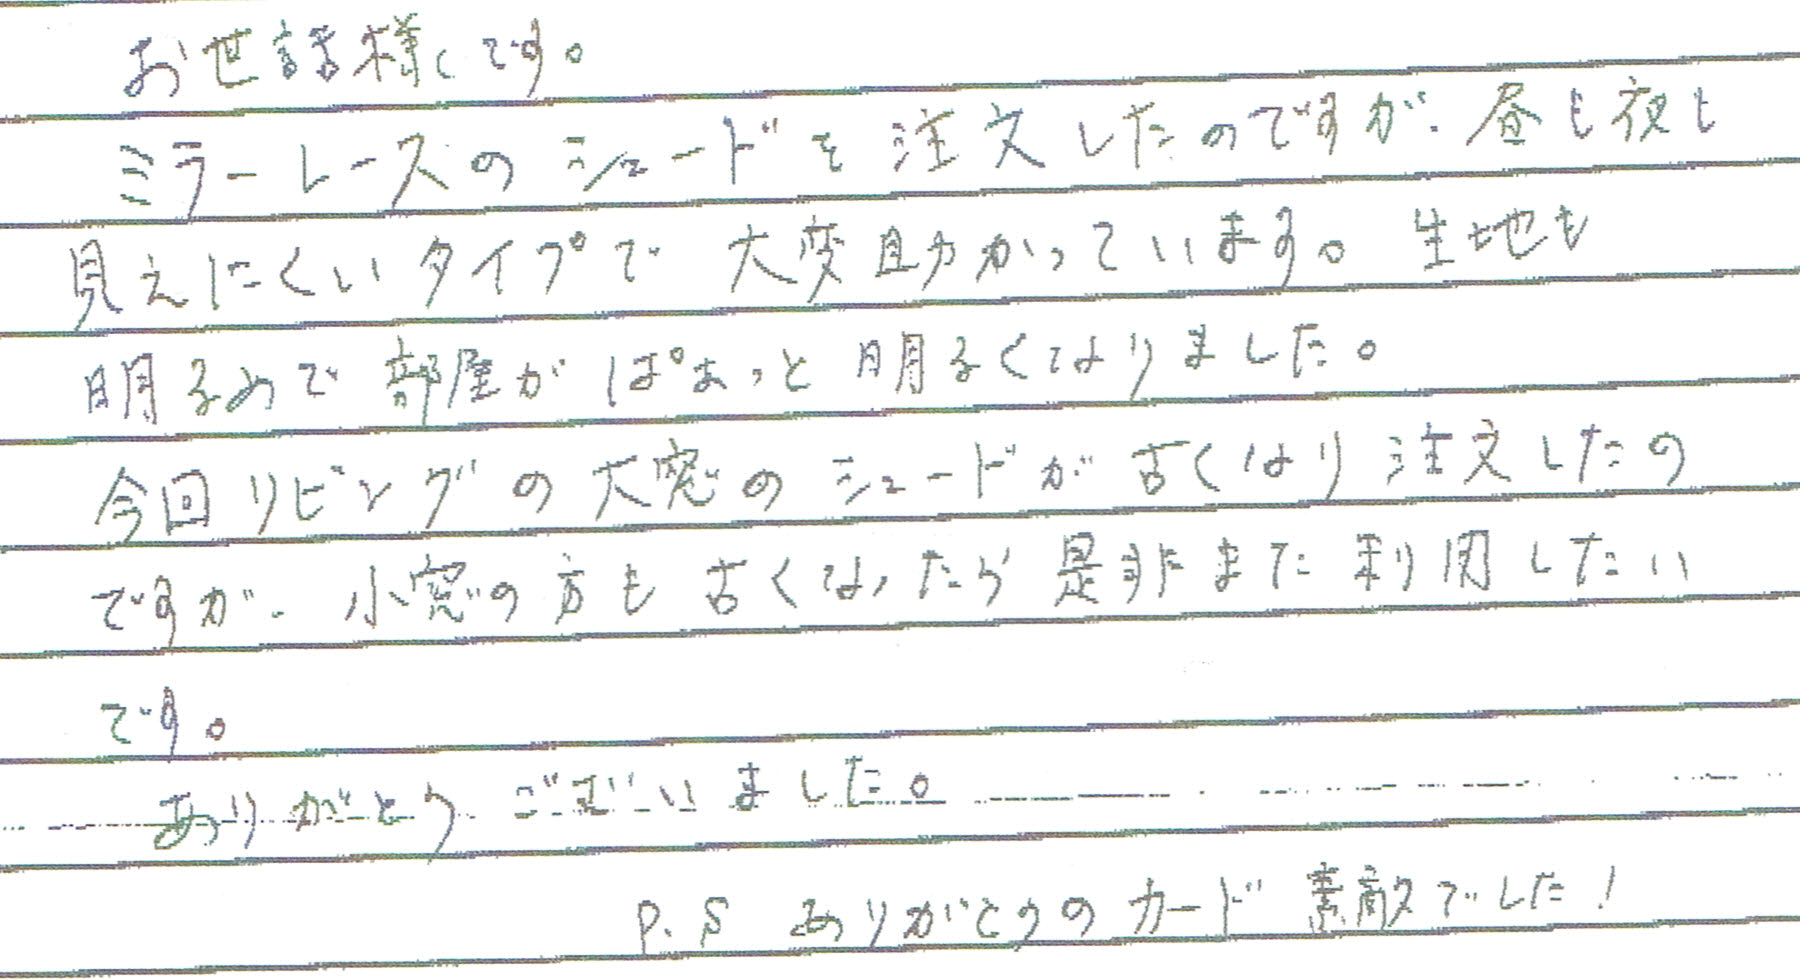 お世話様です。
ミラーレースのシェードを注文したのですが、昼も夜も
見えにくいタイプで大変助かっています。生地も
明るめで部屋がぱぁっと明るくなりました。
今回リビングの大窓のシェードが古くなり注文したの
ですが、小窓の方も古くなったら是非また利用したい
です。
ありがとうございました。
P.S ありがとうのカード素敵でした!